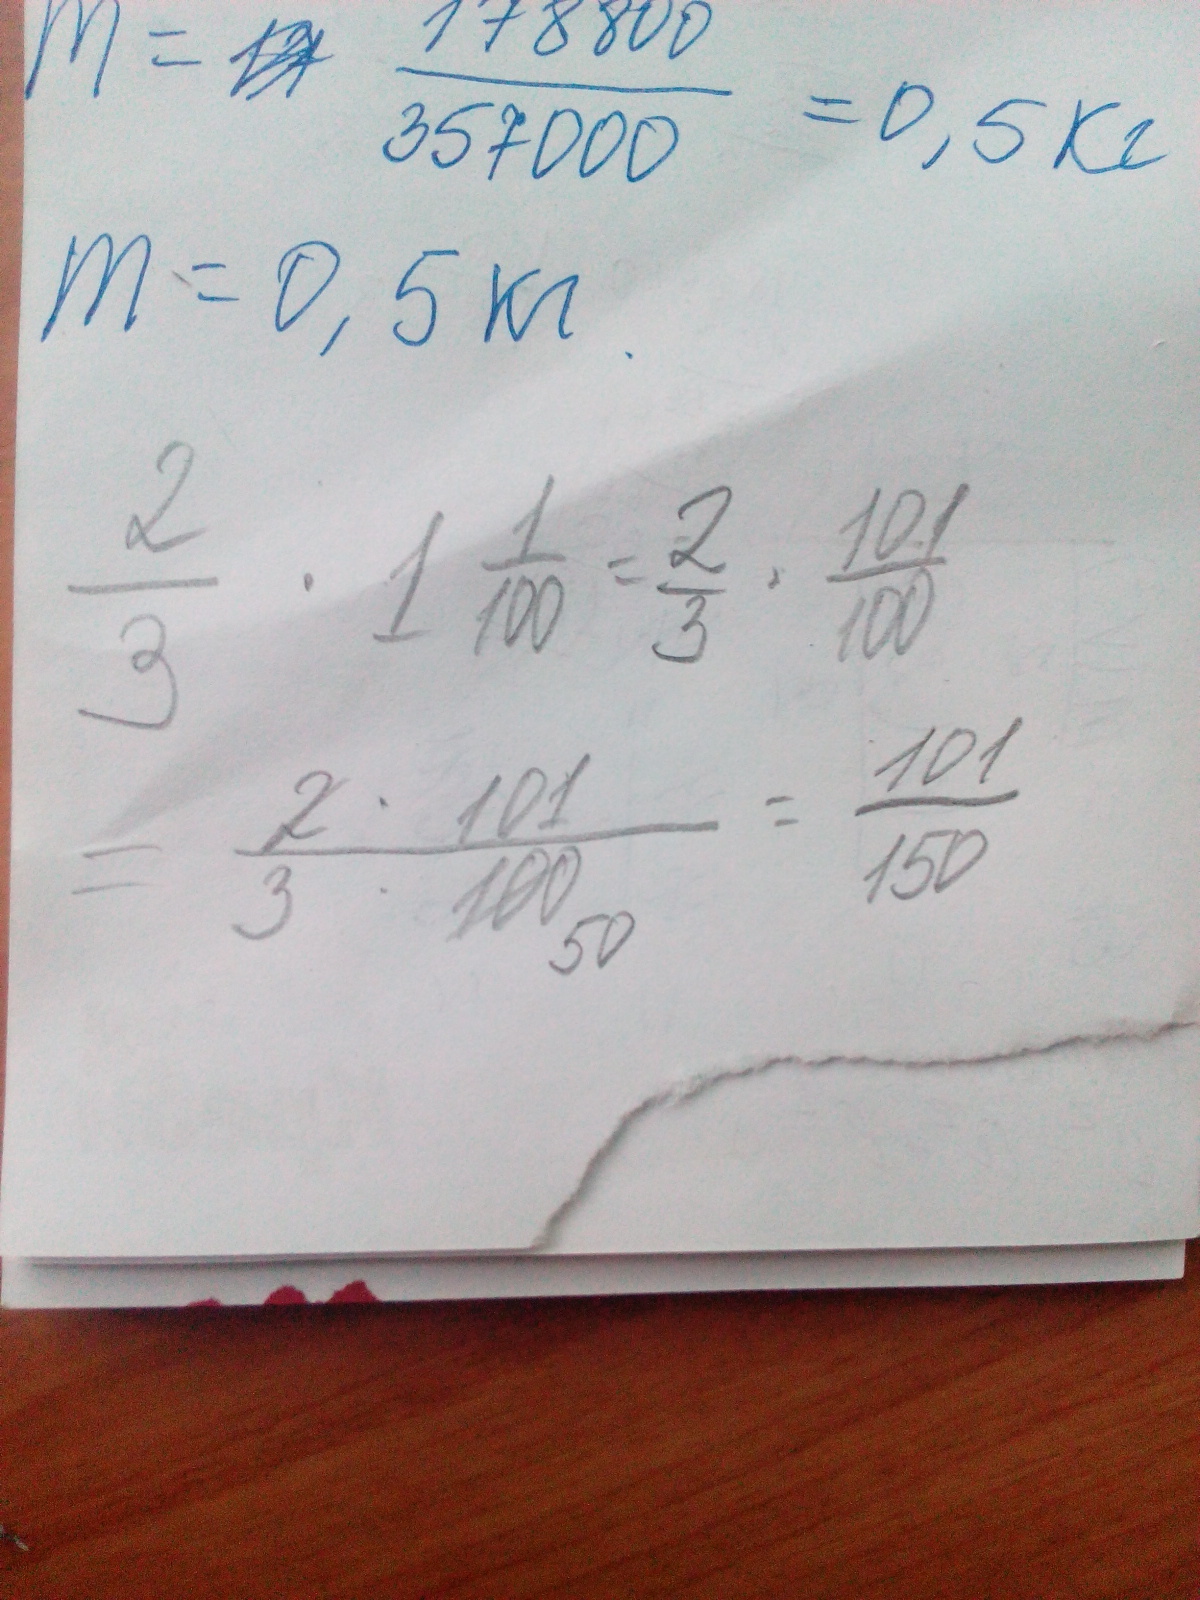 m = 178800/357000 = 0,5 кг
m = 0,5 кг.
2/3 · 1 1/100 = 2/3 · 101/100
= 2 · 101/3 · 100 50 = 101/150